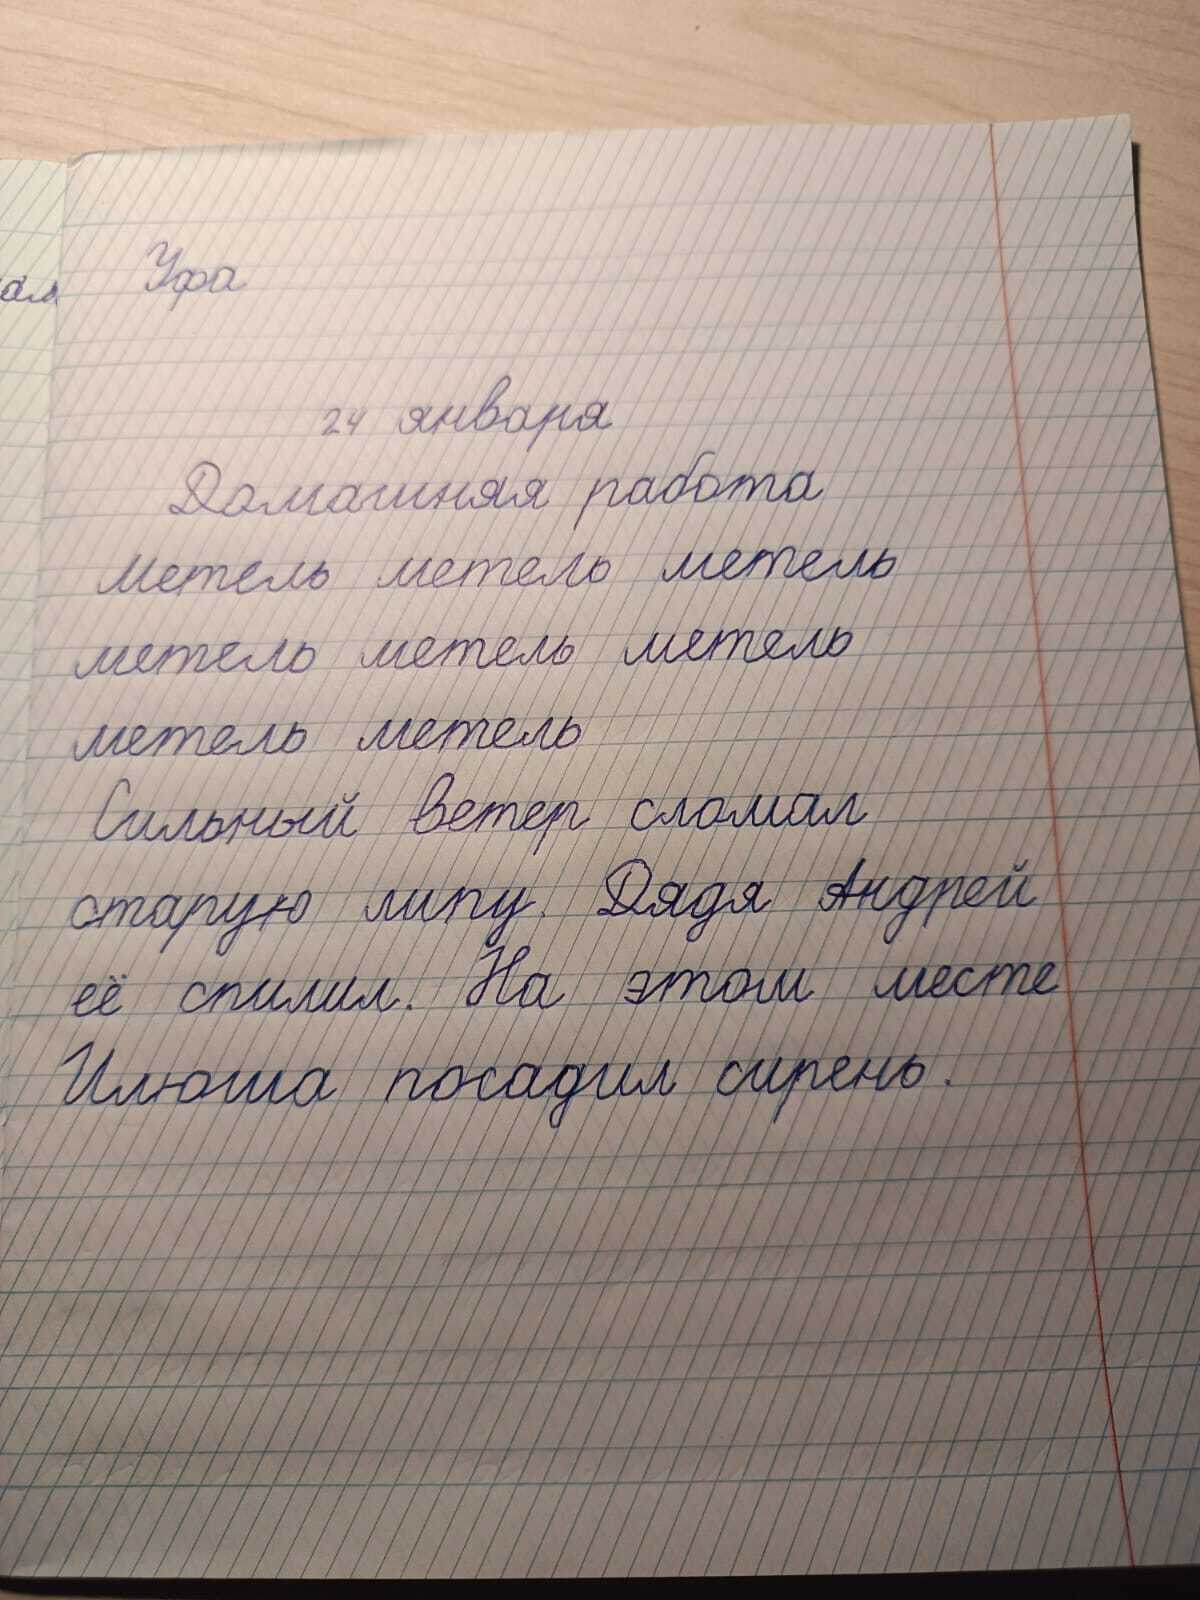 ам
Уфа
24 января
Домашняя работа
Метель метель метель
метель метель метель
метель метель
Сильный ветер сломал
старую липу. Дядя Андрей
её спилил. На этом месте
Илюша посадил сирень.